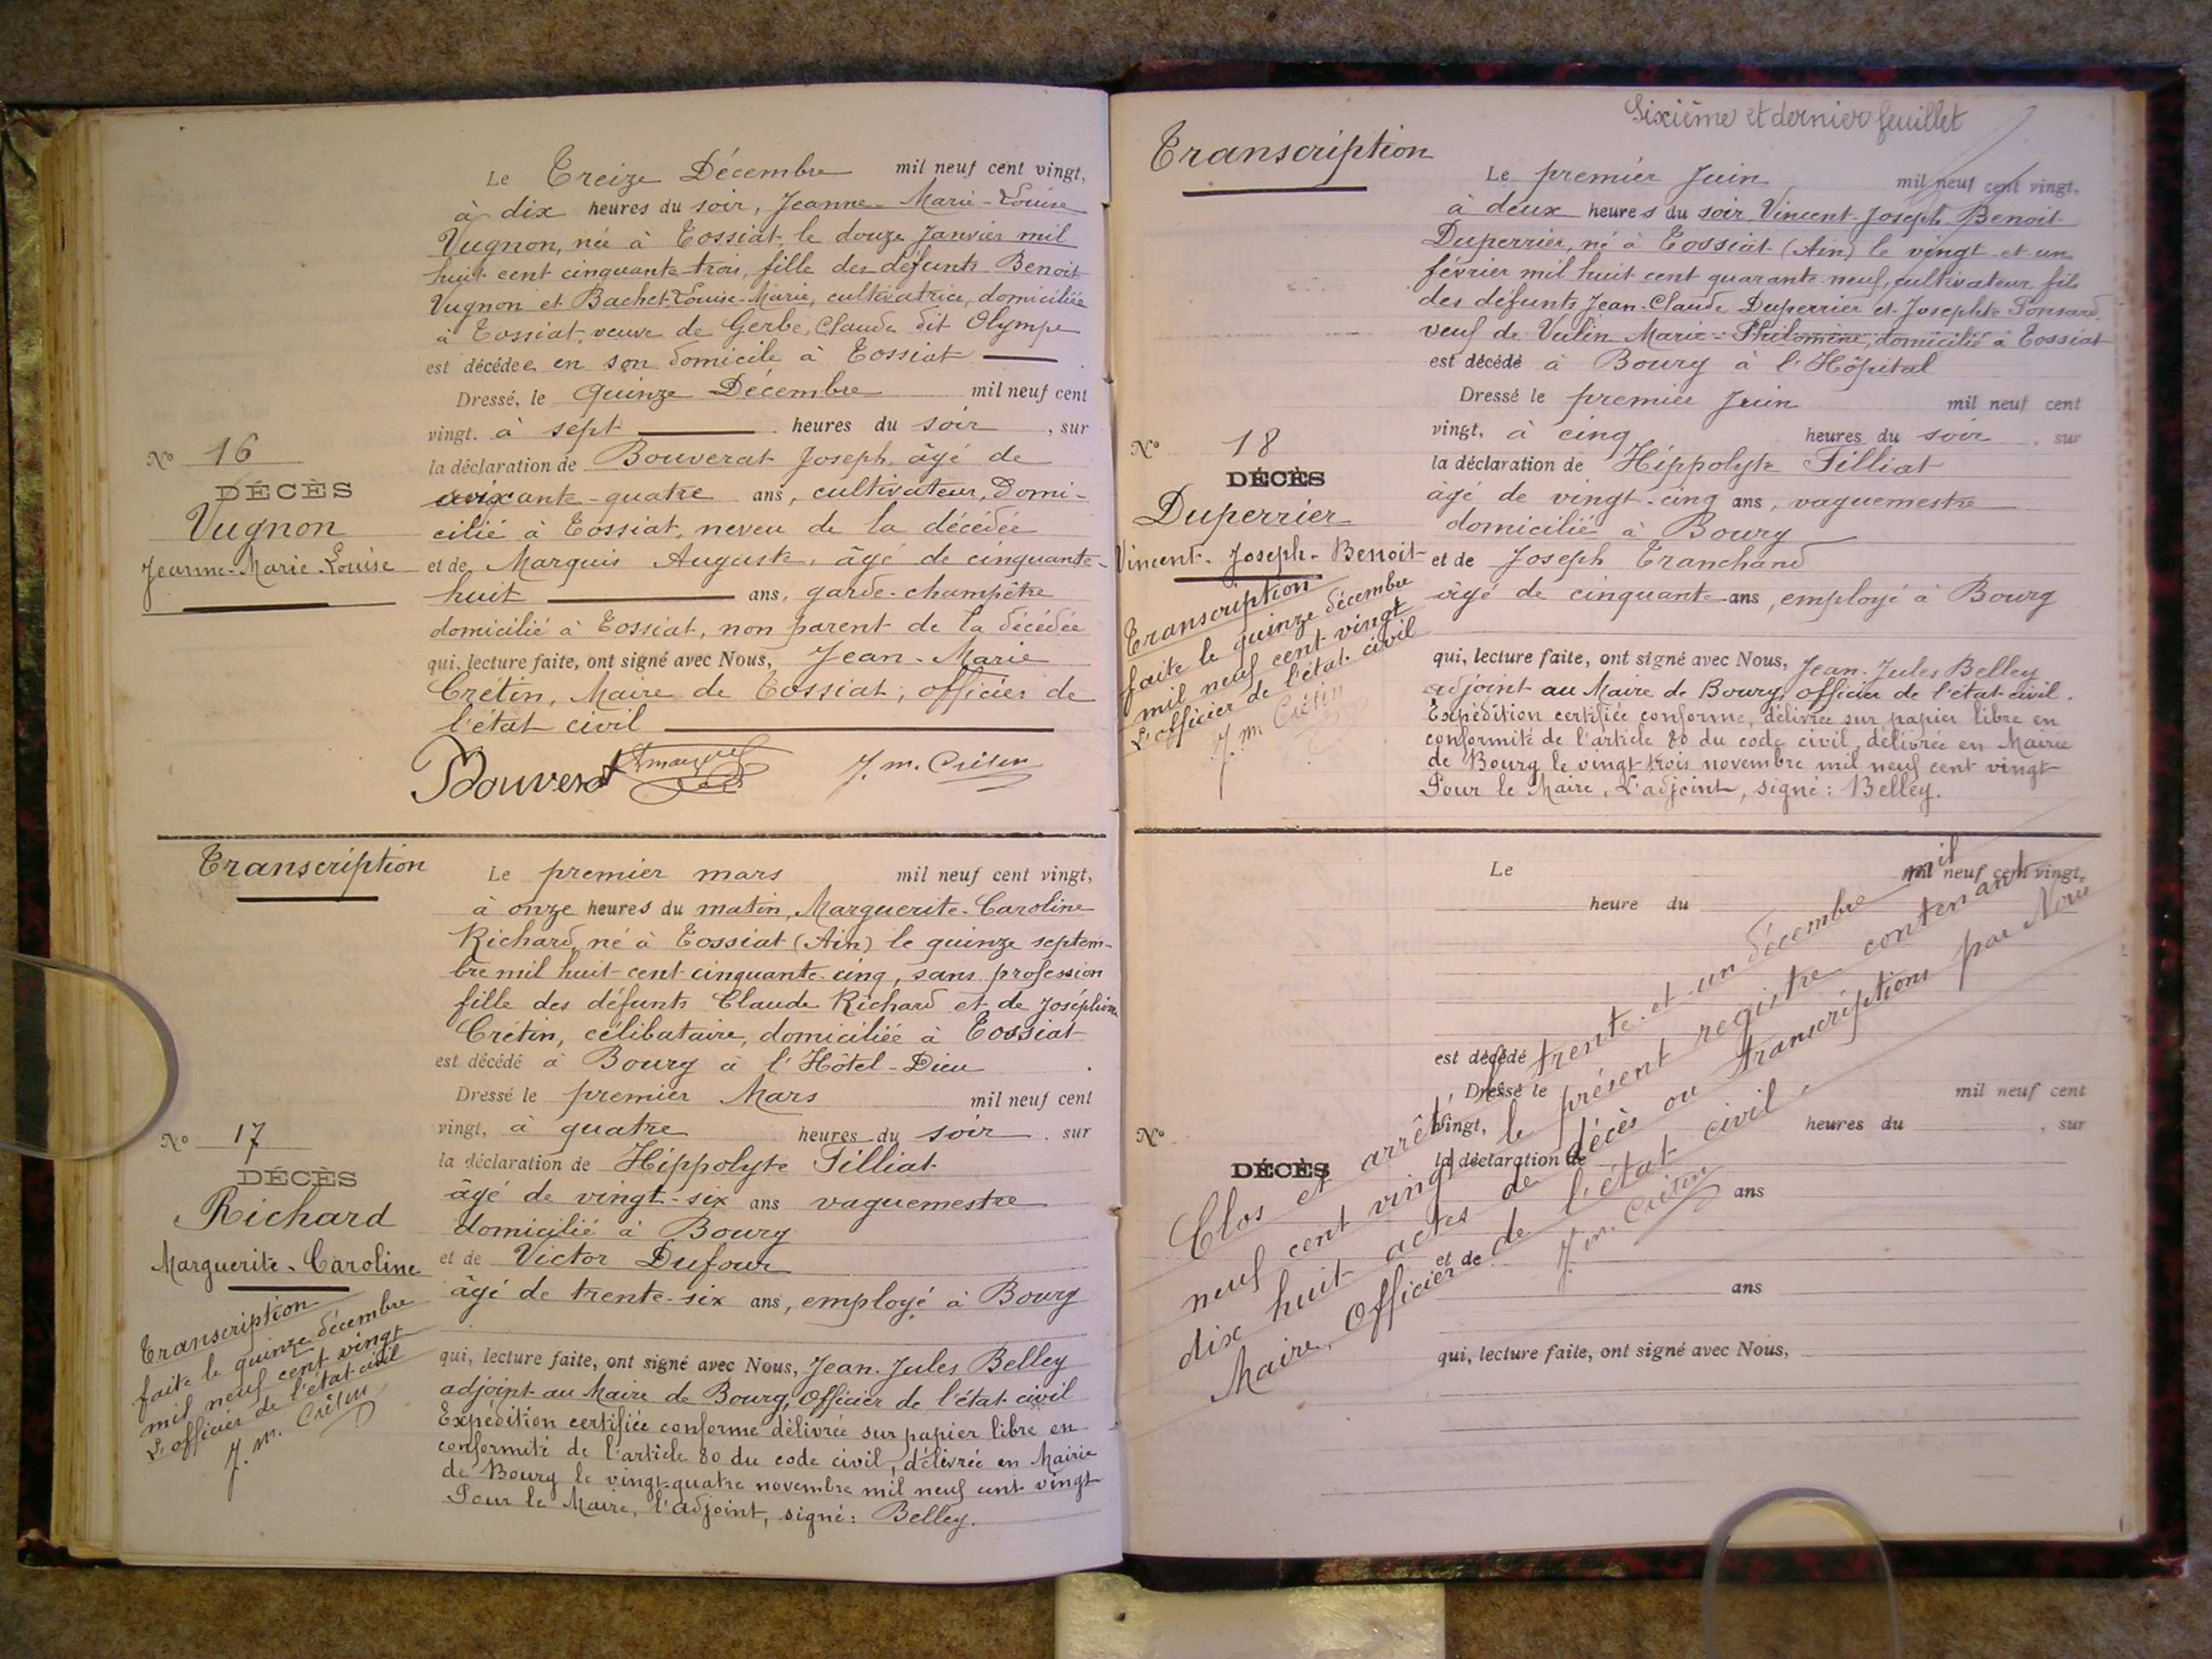 Le Treize Décembre mil neuf cent vingt,
à dix heures du soir, Jeanne-Marie-Louise
Vugnon, née à Tossiat, le douze Janvier mil
huit cent cinquante-trois, fille des défunts Benoit
Vugnon et Bachet Louise-Marie, cultivatrice, domiciliée
à Tossiat, veuve de Gerbe, Claude dit Olympe
est décédée en son domicile à Tossiat
Dressé, le quinze Décembre mil neuf cent
vingt. à sept heures du soir, sur
la déclaration de Bouverat Joseph, âgé de
soixante-quatre ans, cultivateur, domi-
cilié à Tossiat, neveu de la décédée
et de Marquis Auguste, âgé de cinquante-
huit ans, garde-champêtre
domicilié à Tossiat, non parent de la décédée
qui, lecture faite, ont signé avec Nous, Jean-Marie
Crétin, Maire de Tossiat, officier de
l'état civil
Bouverat
J. m. Crétin
No 16
DÉCÈS
Vugnon
Jeanne-Marie-Louise
Transcription
Le premier mars mil neuf cent vingt,
à onze heures du matin, Marguerite-Caroline
Richard, né à Tossiat (Ain) le quinze septem-
bre mil huit-cent-cinquante-cinq, sans profession
fille des défunts Claude Richard et de Joséphine
Crétin, célibataire, domiciliée à Tossiat
est décédé à Bourg à l'Hôtel-Dieu
Dressé le premier Mars mil neuf cent
vingt, à quatre heures du soir, sur
la déclaration de Hippolyte Tilliat
âgé de vingt-six ans vaguemestre
domicilié à Bourg
et de Victor Dufour
âgé de trente-six ans, employé à Bourg
qui, lecture faite, ont signé avec Nous, Jean-Jules Belley
adjoint au Maire de Bourg, Officier de l'état civil
Expédition certifiée conforme délivrée sur papier libre en
conformité de l'article 80 du code civil, délivrée en Mairie
de Bourg le vingt-quatre novembre mil neuf cent vingt
Pour le Maire, l'adjoint, signé: Belley.
No 17
DÉCÈS
Richard
Marguerite-Caroline
Transcription
faite le quinze décembre
mil neuf cent vingt
L'officier de l'état-civil
J. m. Crétin
Sixième et dernier feuillet
Transcription
Le premier Juin mil neuf cent vingt,
à deux heures du soir, Vincent-Joseph Benoit
Duperrier, né à Tossiat (Ain) le vingt-et-un
février mil huit cent quarante neuf, cultivateur, fils
des défunts Jean-Claude Duperrier et Josephte Ponsard,
veuf de Vulin Marie-Philomène, domicilié à Tossiat
est décédé à Bourg à l'Hôpital
Dressé le premier Juin mil neuf cent
vingt, à cinq heures du soir, sur
la déclaration de Hippolyte Tilliat
âgé de vingt-cinq ans, vaguemestre
domicilié à Bourg
et de Joseph Tranchand
âgé de cinquante ans, employé à Bourg
qui, lecture faite, ont signé avec Nous, Jean-Jules Belley
adjoint au Maire de Bourg, officier de l'état-civil.
Expédition certifiée conforme, délivrée sur papier libre en
conformité de l'article 80 du code civil, délivrée en Mairie
de Bourg le vingt-trois novembre mil neuf cent vingt
Pour le Maire, L'adjoint, signé: Belley.
No 18
DÉCÈS
Duperrier
Vincent-Joseph-Benoit
Transcription
faite le quinze décembre
mil neuf cent vingt
L'officier de l'état civil
J. m. Crétin
Le mil neuf cent vingt,
heure du
est décédé
Dressé le mil neuf cent
vingt, heures du , sur
la déclaration de
ans
et de
ans
qui, lecture faite, ont signé avec Nous,
No
DÉCÈS
Clos et arrêté, le trente-et-un décembre mil
neuf cent vingt le présent registre contenant
dix huit actes de décès ou transcriptions par Nous
Maire, Officier de l'état civil.
J. m. Crétin